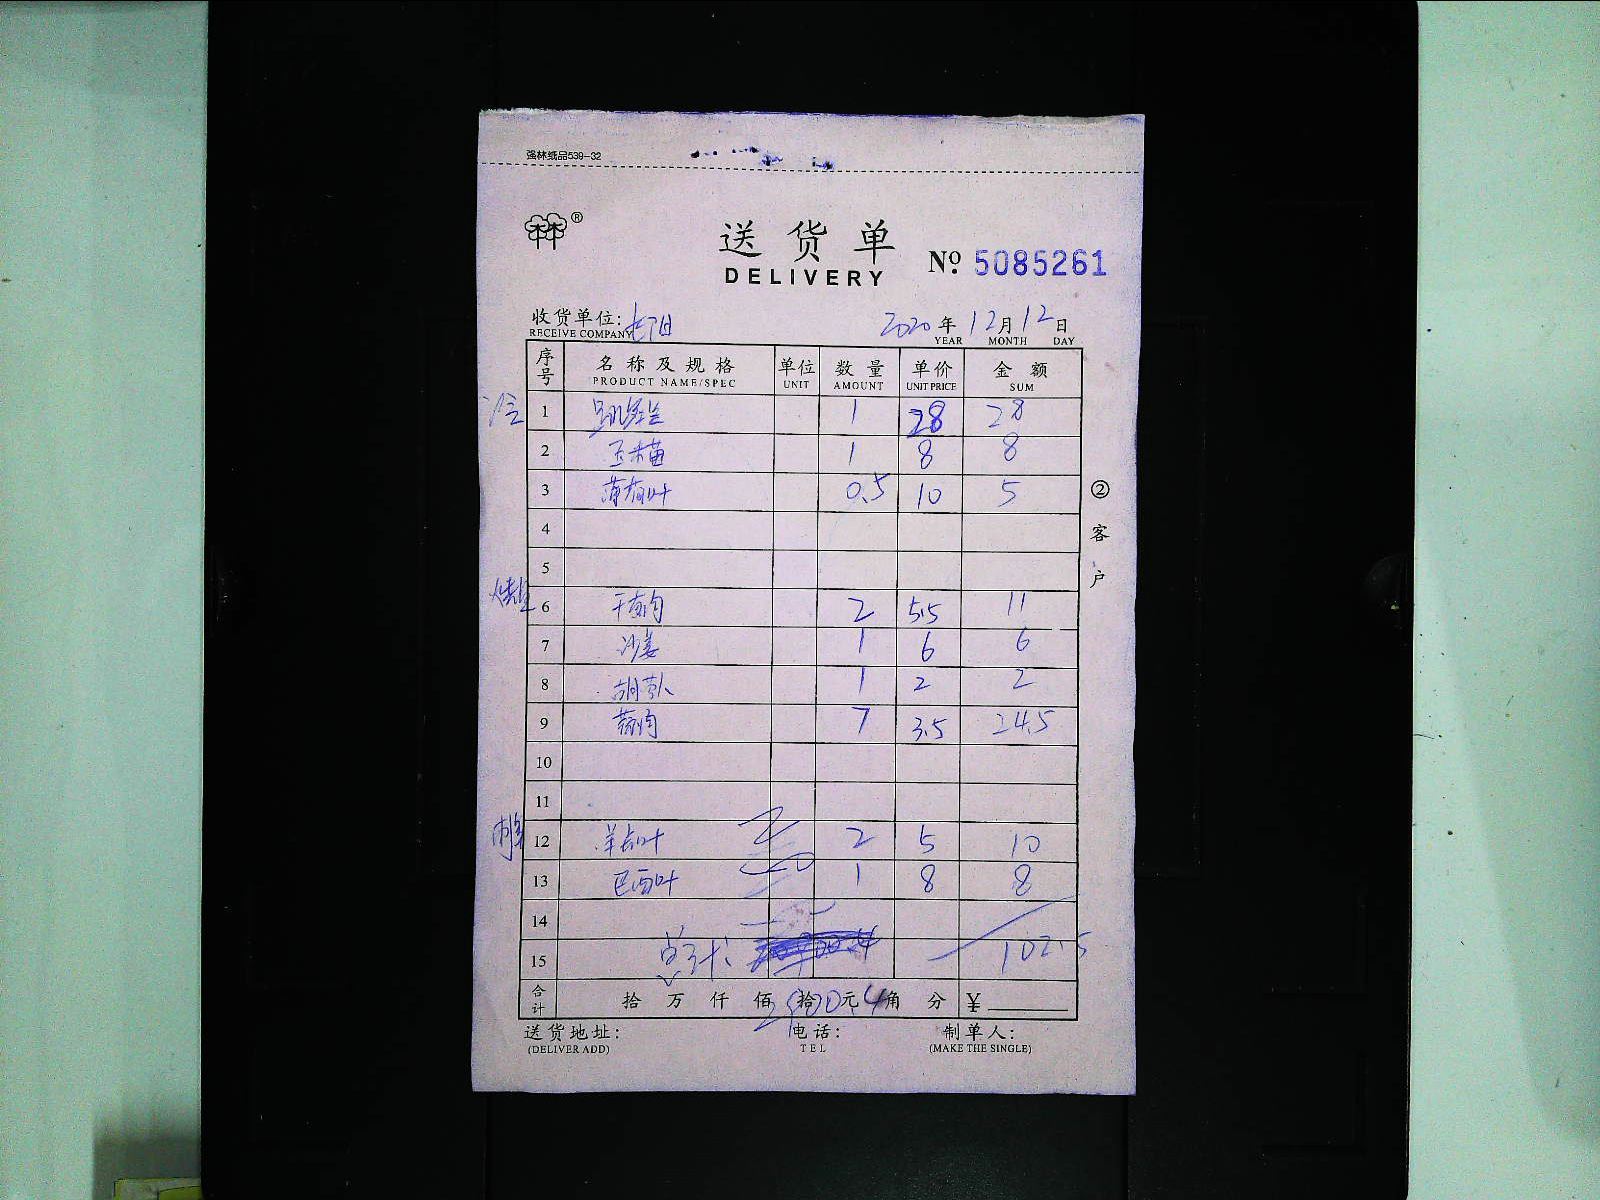 强林纸品539-32
®
送货单
DELIVERY
№ 5085261
收货单位:
RECEIVE COMPANY
2020年12月12日
YEAR MONTH DAY
序号 名称及规格 单位 数量 单价 金额
PRODUCT NAME/SPEC UNIT AMOUNT UNIT PRICE SUM
冷 1 1 28 28
2 玉米苗 1 8 8
3 薄荷叶 0.5 10 5
4
5
烧腊 6 2 5.5 11
7 沙姜 1 6 6
8 胡萝卜 1 2 2
9 7 3.5 24.5
10
11
刺身 12 2 5 10
13 巴西叶 1 8 8
14
15 总计: 102.5
合计 拾万仟佰拾元角分 ¥
②客户
送货地址: 电话: 制单人:
(DELIVER ADD) TEL (MAKE THE SINGLE)